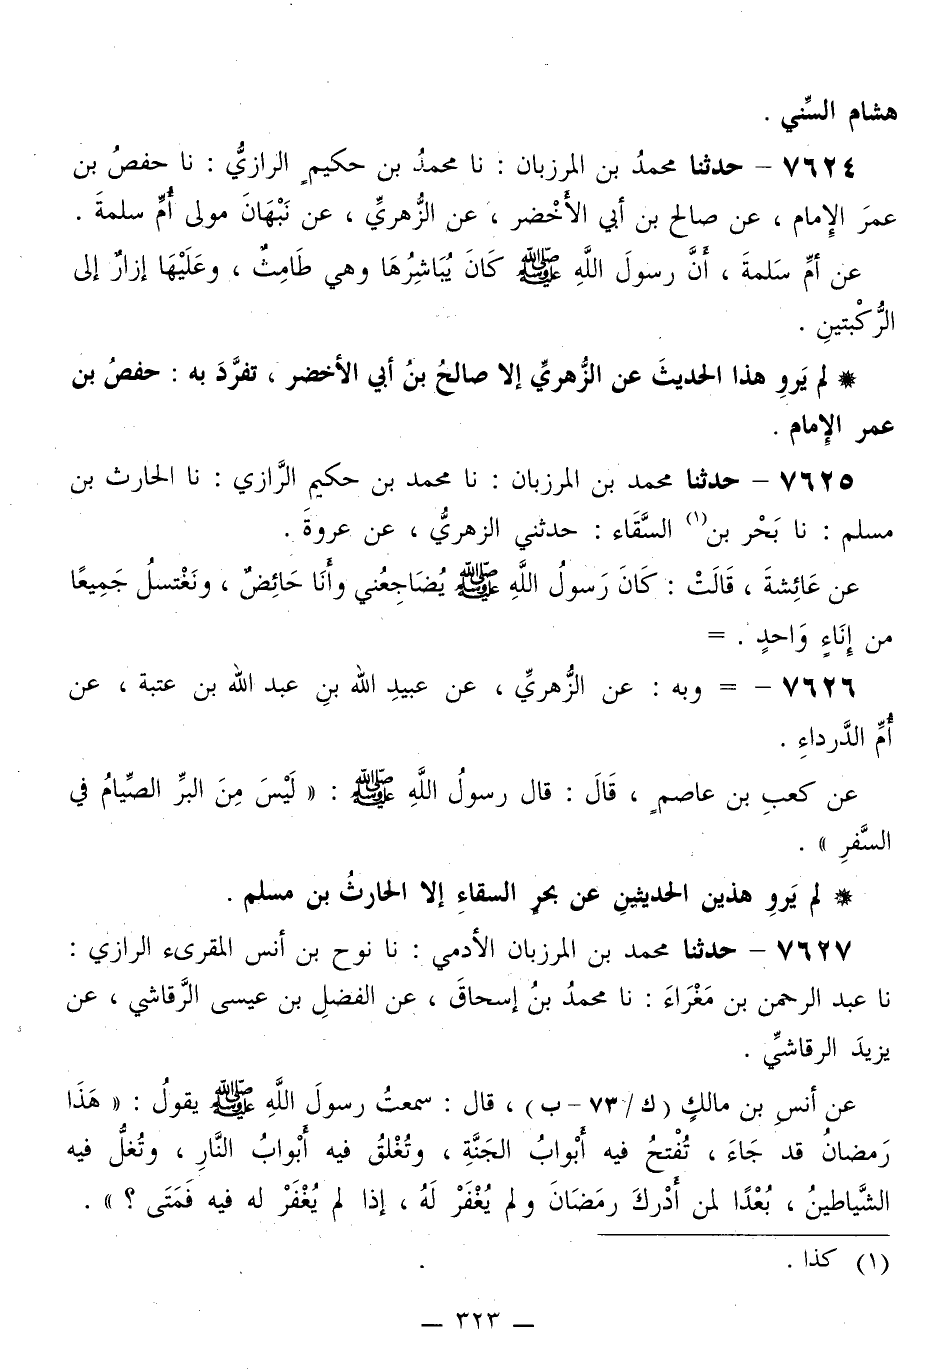 هشام السِّني .
٧٦٢٤ – حدثنا محمدُ بن المرزبان : نا محمدُ بن حكيمٍ الرازيُّ : نا حفصُ بن
عمرَ الإمام ، عن صالح بن أبي الأَخْضر ، عن الزُّهريِّ ، عن نَبْهَانَ مولى أُمِّ سلمةَ .
عن أمِّ سَلمةَ ، أَنَّ رسولَ اللَّهِ ﷺ كَانَ يُبَاشِرُهَا وهي طَامِثٌ ، وعَلَيْهَا إزارٌ إلى
الرُّكْبتينِ .
* لم يَروِ هذا الحديثَ عن الزُّهريِّ إلا صالحُ بنُ أبي الأخضر ، تفرَّدَ به : حفصُ بن
عمر الإمام .
٧٦٢٥ – حدثنا محمد بن المرزبان : نا محمد بن حكيم الرَّازي : نا الحارث بن
مسلم : نا بَحْر بن(١) السقَّاء : حدثني الزهريُّ ، عن عروةَ .
عن عَائِشةَ ، قَالَتْ : كَانَ رَسولُ اللَّهِ ﷺ يُضَاجِعُني وأَنَا حَائِضٌ ، ونَغْتسلُ جَمِيعًا
من إِنَاءٍ وَاحدٍ . =
٧٦٢٦ – = وبه : عن الزُّهريِّ ، عن عبيدِ الله بنِ عبد الله بن عتبة ، عن
أُمِّ الدَّرداءِ .
عن كعبِ بن عاصمٍ ، قَالَ : قال رسولُ اللَّهِ ﷺ : « لَيْسَ مِنَ البرِّ الصِّيامُ في
السَّفرِ » .
* لم يَروِ هذين الحديثينِ عن بحرٍ السقاءِ إلا الحارثُ بن مسلم .
٧٦٢٧ – حدثنا محمد بن المرزبان الأدمي : نا نوح بن أنس المقرىء الرازي :
نا عبد الرحمن بن مَغْرَاءَ : نا محمدُ بنُ إسحاقَ ، عن الفضلِ بن عيسى الرَّقاشي ، عن
يزيدَ الرقاشيِّ .
عن أنسِ بن مالكٍ (ك/٧٣ – ب) ، قال : سمعتُ رسولَ اللَّهِ ﷺ يقولُ : « هَذَا
رَمضانُ قد جَاءَ ، تُفْتحُ فيه أَبْوابُ الجَنَّةِ ، وتُغْلقُ فيه أَبْوابُ النَّارِ ، وتُغلُّ فيه
الشَّياطينُ ، بُعْدًا لمن أَدْركَ رمَضَانَ ولم يُغْفَرْ لَهُ ، إذا لم يُغْفَرْ له فيه فَمَتَى ؟ » .
(١) كذا .
– ٣٢٣ –